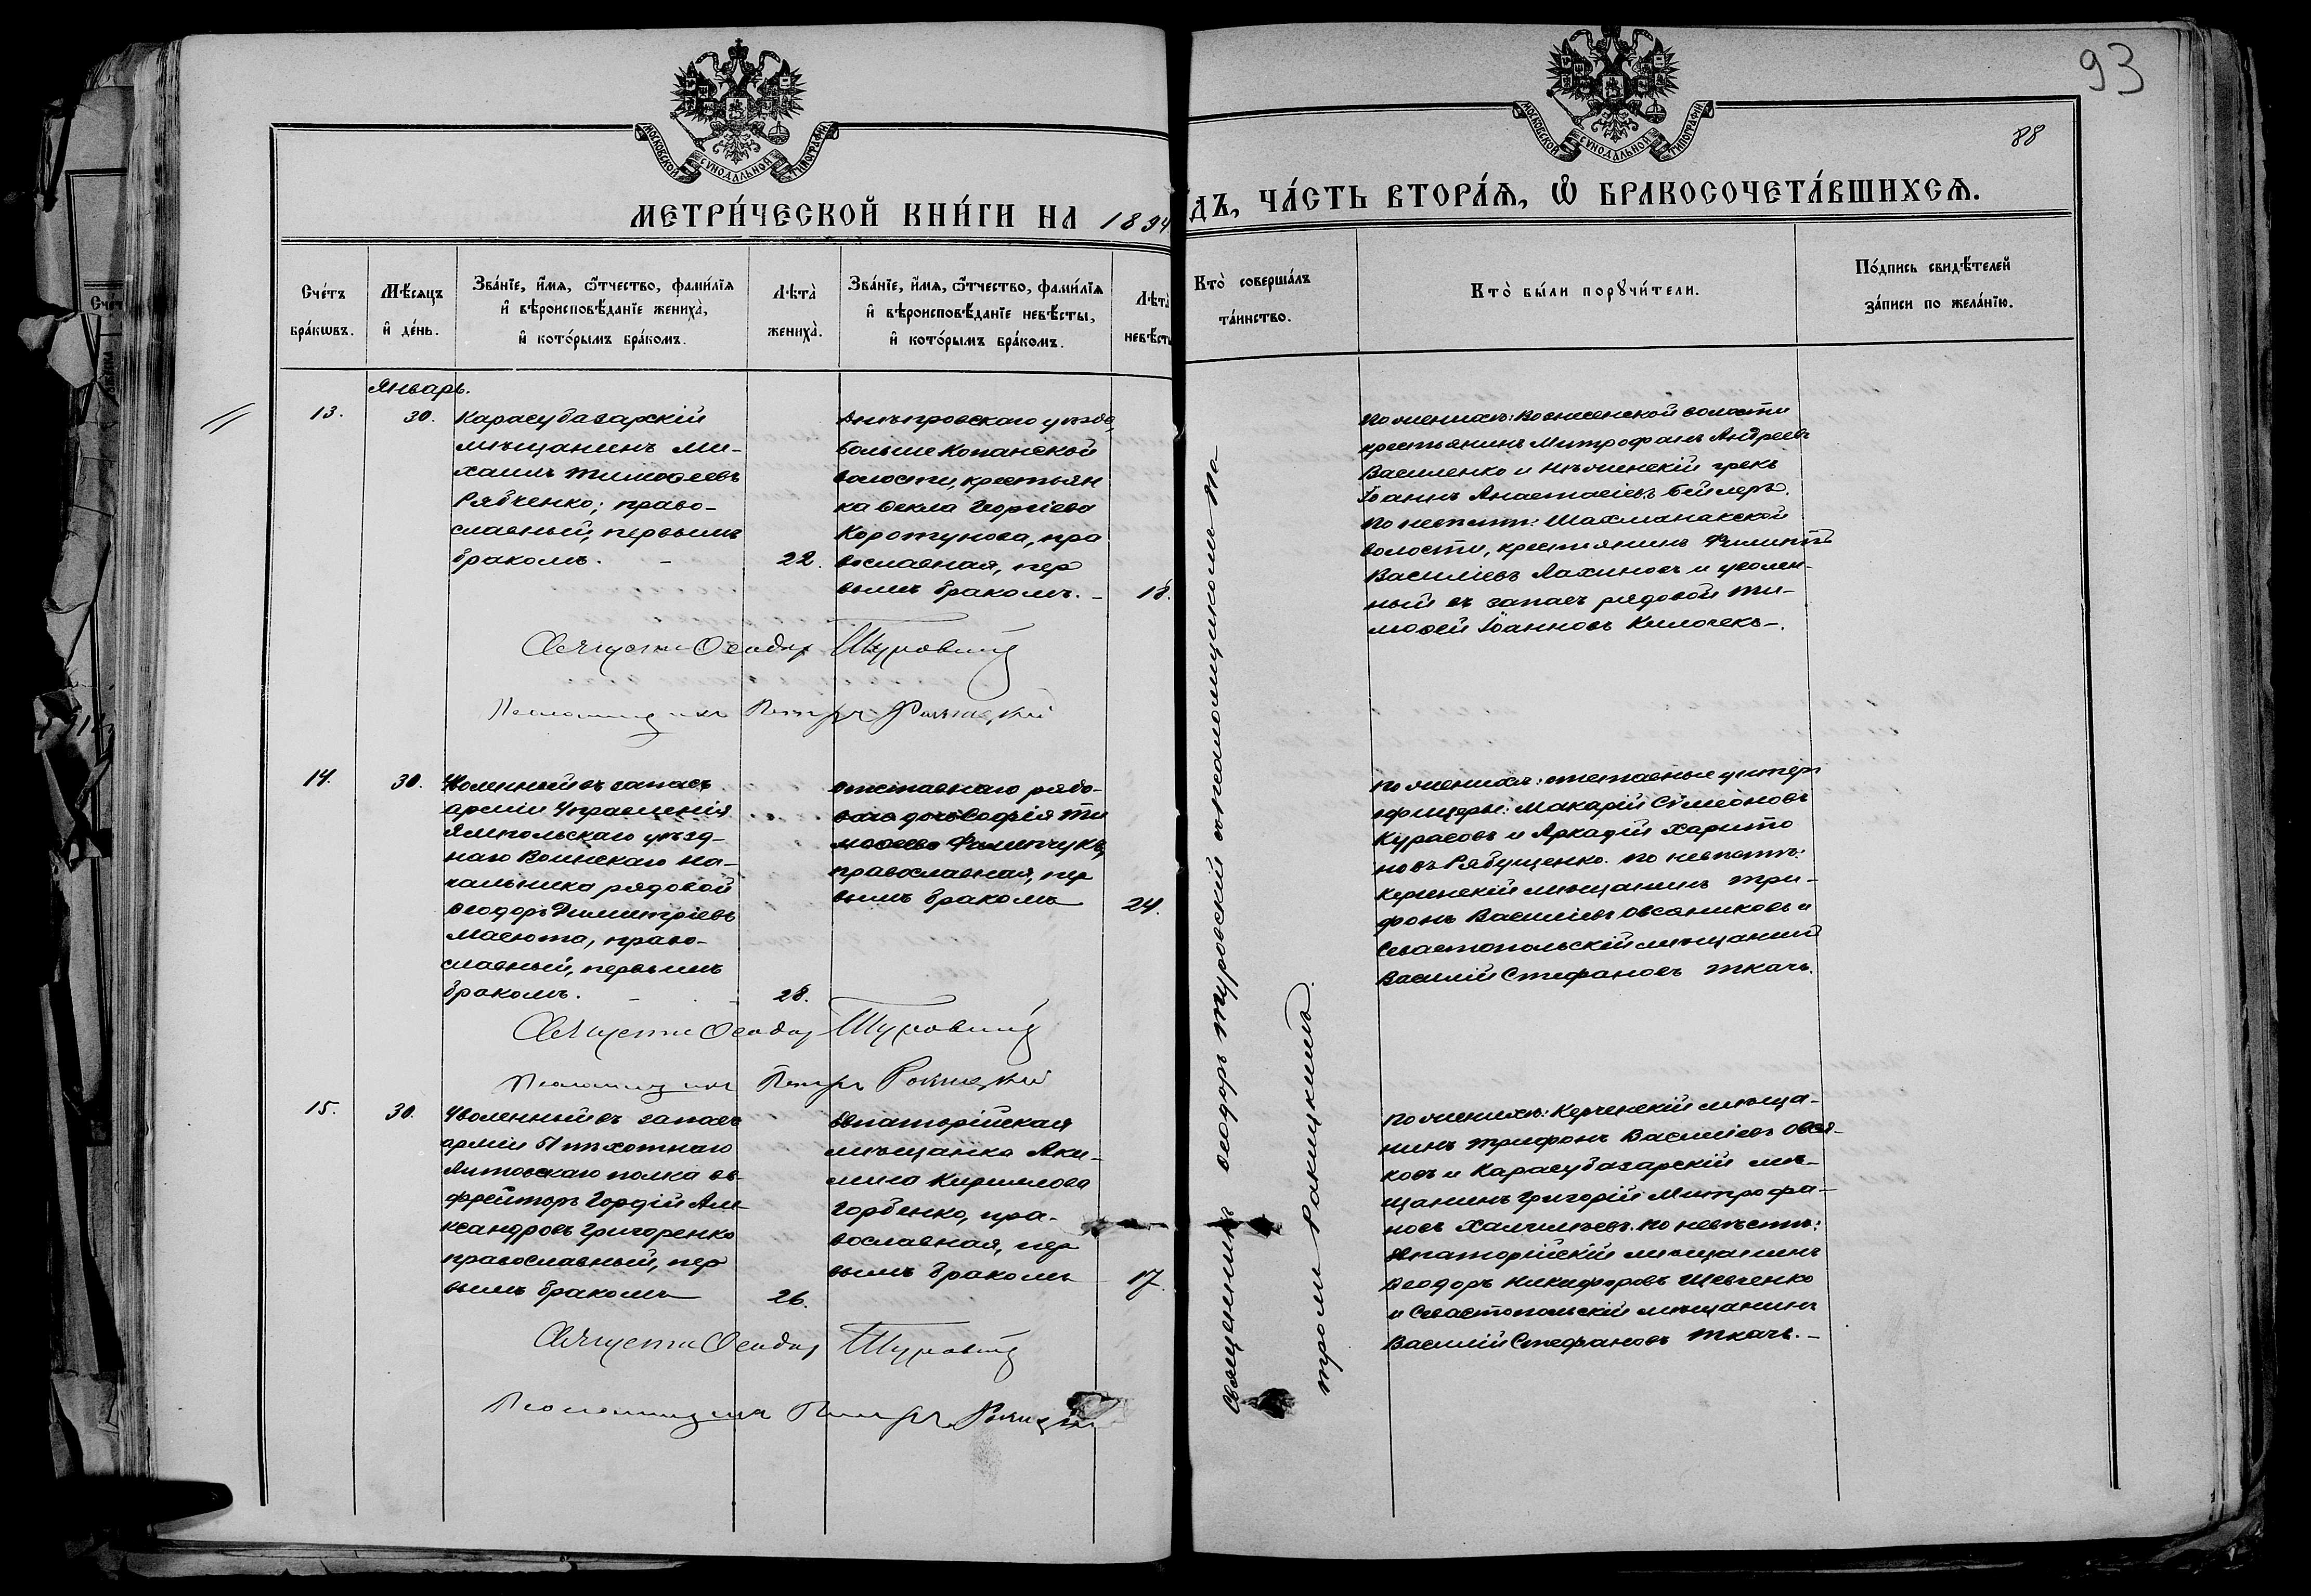 93
88
МОСКОВСКОЙ СѴНОДАЛЬНОЙ ТИПОГРАФІИ
МОСКОВСКОЙ СѴНОДАЛЬНОЙ ТИПОГРАФІИ
МЕТРИ́ЧЕСКОЙ КНИ́ГИ НА 1894
ДЪ, ЧА́СТЬ ВТОРА́Ѧ, Ѽ БРАКОСОЧЕТА́ВШИХСѦ.
Сче́тъ
бра́кѡвъ.
Мѣ́сяцъ
и҆ де́нь.
Зва́нїе, и҆́мя, ѻ҆́тчество, фами́лїя
и҆ вѣроисповѣ́данїе жениха̀,
и҆ кото́рымъ бра́комъ.
Лѣта̀
жениха̀.
Зва́нїе, и҆́мя, ѻ҆́тчество, фами́лїя
и҆ вѣроисповѣ́данїе невѣ́сты,
и҆ кото́рымъ бра́комъ.
Лѣта̀
невѣ́сты
Кто̀ соверша́лъ
та́инство.
Кто̀ бы́ли порꙋчи́тели.
По́дпись свидѣ́телей
за́писи по жела́нїю.
Январь.
13.
30.
Карасубазарскій
мѣщанинъ Ми-
хаилъ Тимоѳеевъ
Рябченко; право-
славный, первымъ
бракомъ. -
22.
Днѣпровскаго уѣзда,
больше Копанской
волости, крестьян
ка Ѳекла Георгіева
Коротунова, пра
вославная, пер
вымъ бракомъ. -
18.
По женихѣ: Вознесенской волости
крестьянинъ Митрофанъ Андреевъ
Василенко и Нѣжинскій грекъ
Іоаннъ Анастасіевъ Бейлеръ.
По невѣстѣ:
волости, крестьянинъ Филиппъ
Василіевъ Лахиновъ и уволен-
ный въ запасъ рядовой Ти-
моѳей Іоанновъ Килочекъ-.
Священникъ Ѳеодоръ Туровскій
Псаломщикъ Петръ Ракицкій
14.
30.
Уволенный въ запасъ
арміи Управленія
Ямпольскаго уѣзд-
наго Воинскаго На-
чальника рядовой
Ѳеодоръ Димитріевъ
Масюта, право-
славный, первымъ
бракомъ. - -
28.
Отставнаго рядо-
ваго дочь Софія Ти
моѳеева Филипчукъ,
православная, пер
вымъ бракомъ
24.
По женихѣ: отставные унтеръ
офицеры: Макарій Сѵмеоновъ
Курасовъ и Аркадій Харито
новъ Рябущенко. По невѣстѣ:
Керченскій мѣщанинъ Три-
фонъ Василіевъ Овсяниковъ и
Севастопольскій мѣщанинъ
Василій Стефановъ Ткачъ.
Священникъ Ѳеодоръ Туровскій
Псаломщикъ Петръ Ракицкій
15.
30.
Уволенный въ запасъ
арміи 51 пѣхотнаго
Литовскаго полка еѳ-
фрейторъ Гордій Але-
ксандровъ Григоренко
православный, пер
вымъ бракомъ
26.
Евпаторійская
мѣщанка Аки-
лина Кириллова
Горбенко, пра-
вославная, пер
вымъ бракомъ
17.
По женихѣ: Керченскій мѣща-
нинъ Трифонъ Василіевъ Овсян-
ковъ и Карасубазарскій мѣ-
щанинъ Григорій Митрофа-
новъ По невѣстѣ:
Евпаторійскій мѣщанинъ
Ѳеодоръ Никифоровъ Шевченко
и Севастопольскій мѣщанинъ
Василій Стефановъ Ткачъ. -
Священникъ Ѳеодоръ Туровскій
Псаломщикъ Петръ Ракицкій
Священникъ Ѳеодоръ Туровскій съ псаломщикомъ Пе-
тромъ Ракицкимъ.